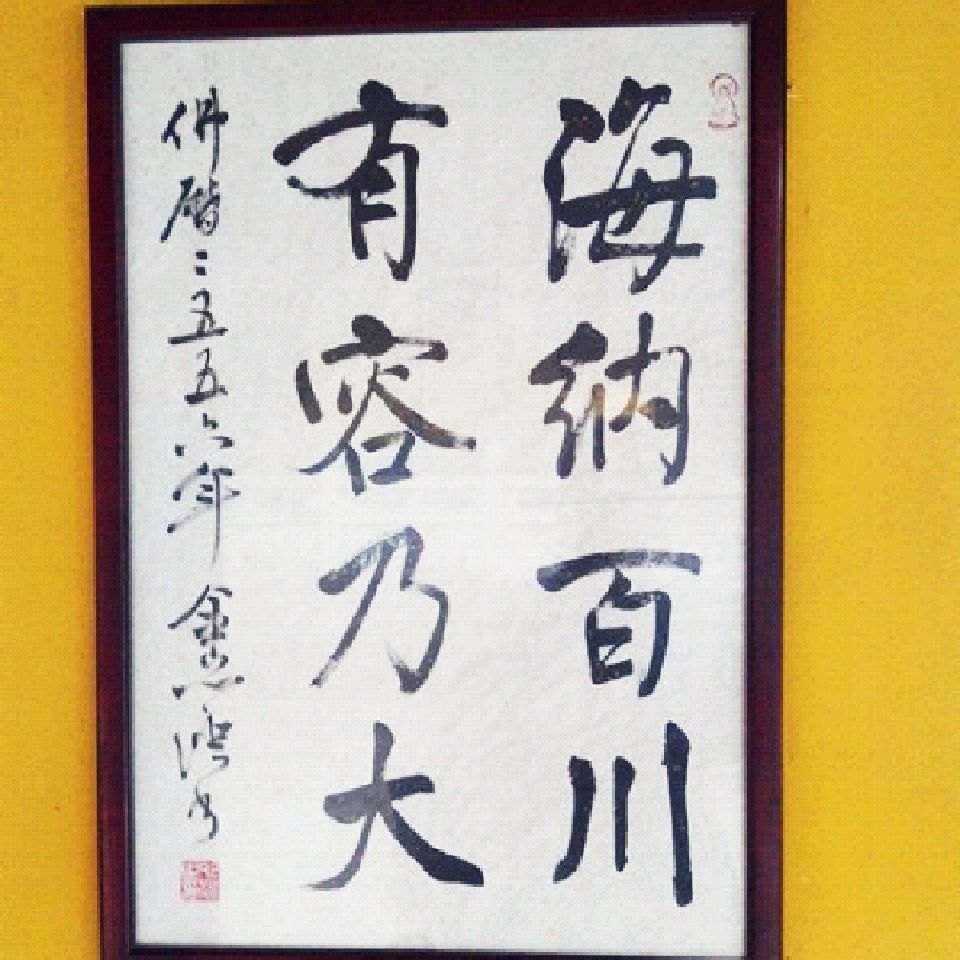 海纳百川
有容乃大
佛曆二五五六年